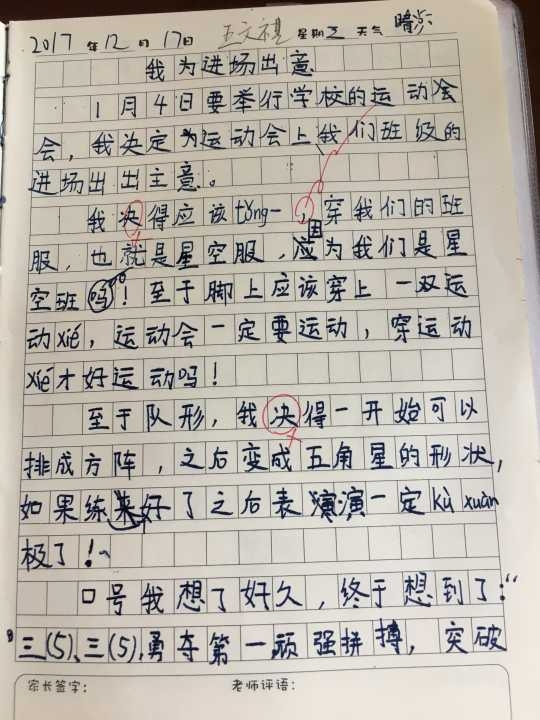 2017 年 12 月 17日 王文祺 星期 天气 晴
我为进场出意
1月4日要举行学校的运动会
会，我决定为运动会上我们班级的
进场出出主意。
我决得应该tǒng一，穿我们的班
服，也就是星空服，因为我们是星
空班吗！至于脚上应该穿上一双运
动xié，运动会一定要运动，穿运动
xié才好运动吗！
至于队形，我决得一开始可以
排成方阵，之后变成五角星的形状，
如果练来好了之后表演演一定kù xuàn
极了！
口号我想了好久，终于想到了：“
三(5)、三(5)，勇夺第一，顽强拼搏，突破
家长签字： 老师评语：